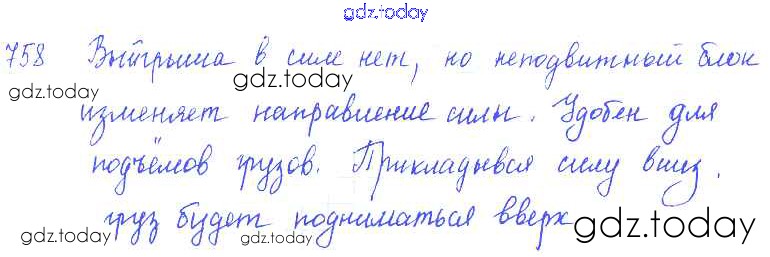 gdz.today
758 Выйгрыша в силе нет, но неподвижный блок
gdz.today gdz.today gdz.today
изменяет направление силы. Удобен для
подъёмов грузов. Прикладывая силу вниз,
груз будет подниматься вверх
gdz.today gdz.today gdz.today